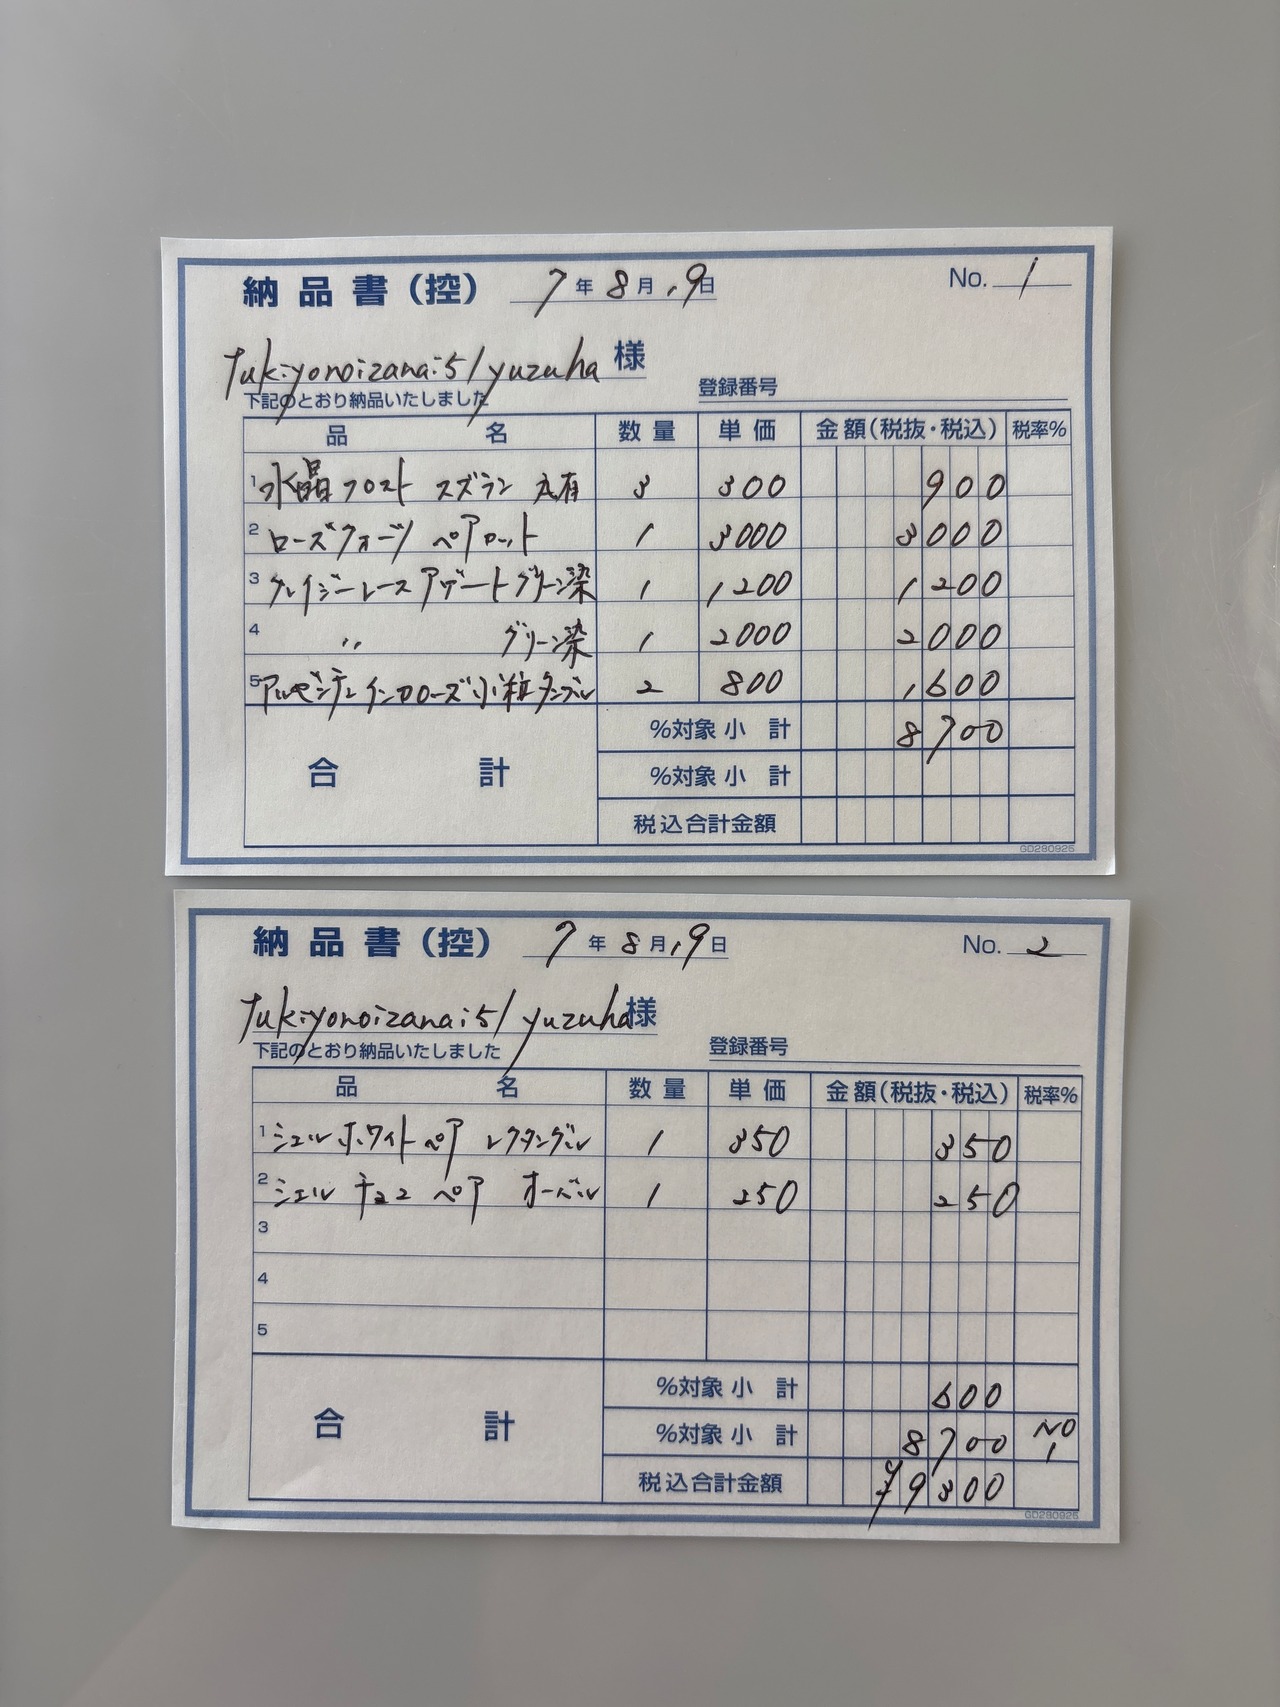 納品書(控) 7年8月19日 No. 1
tukiyonoizanai51yuzuha 様
下記のとおり納品いたしました 登録番号
品名 数量 単価 金額(税抜・税込) 税率%
1 水晶フロスト スズラン 穴有 3 300 900
2 ローズクォーツ ペアロット 1 3000 3000
3 クレイジーレースアゲート グリーン染 1 1200 1200
4 〃 グリーン染 1 2000 2000
5 アルゼンチンインカローズ小粒タンブル 2 800 1600
%対象 小計 8700
合計 %対象 小計
税込合計金額
GD280925
納品書(控) 7年8月19日 No. 2
tukiyonoizanai51yuzuha 様
下記のとおり納品いたしました 登録番号
品名 数量 単価 金額(税抜・税込) 税率%
1 シェルホワイトペア レクタングル 1 350 350
2 シェル チョコ ペア オーバル 1 250 250
3
4
5
%対象 小計 600
合計 %対象 小計 8700 NO 1
税込合計金額 ¥9300
GD280925